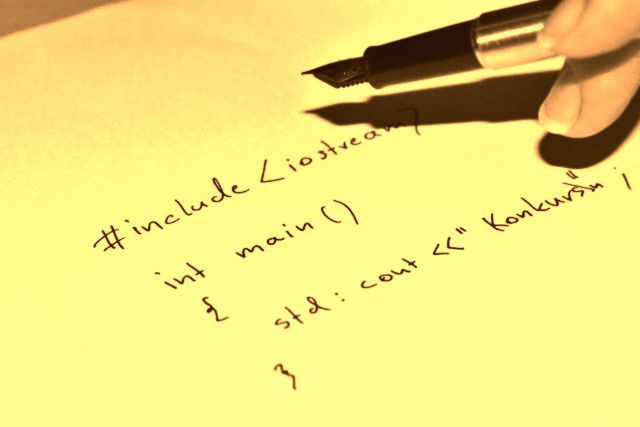 #include <iostream>
int main ()
{
std : cout << "Konkurs\n" ;
}